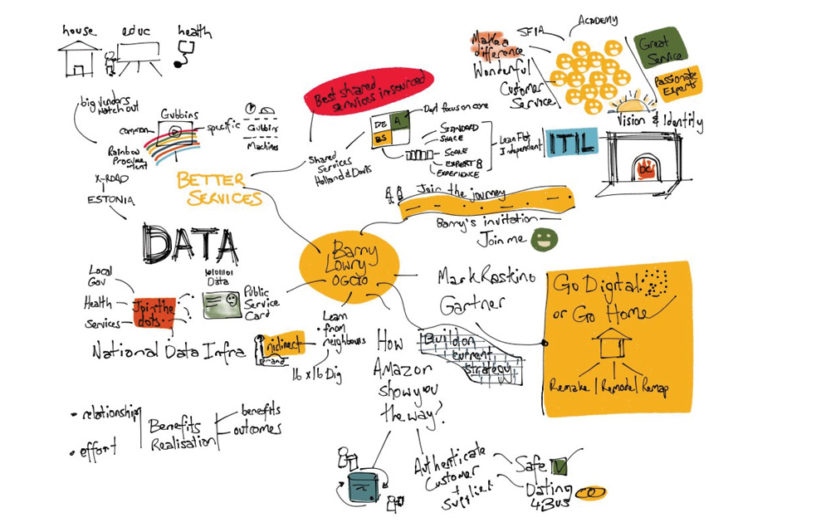 house
educ
health
big vendors
watch out
Gubbins
common
specific
Gubbins
Machines
Rainbow
Procurement
X-ROAD
ESTONIA
BETTER
SERVICES
Best shared
services insourced
Shared
Services
Holland & Davis
DE
A
BS
Dept focus on core
STANDARD
SPACE
SCALE
EXPERT &
EXPERIENCE
Lean
Independent
Make a
difference
Wonderful
Customer
Service
SFIA
ACADEMY
Great
Service
Passionate
Experts
Vision & Identity
ITIL
DC
Join the journey
Barry's invitation
Join me
Barry
Lowry
OGCIO
DATA
Local
Gov
Health
Services
Join the
dots
Data
Public
Service
Card
National Data Infra
nidirect
brand
Learn
from
neighbours
16 x 16 Dig
Mark Raskino
Gartner
Go Digital
or Go Home
Remake | Remodel Remap
Build on
current
strategy
How
Amazon
show you
the way?
• relationship
• effort
Benefits
Realisation
benefits
outcomes
Authenticate
Customer
+
Supplier
Safe
Dating
4 Bus